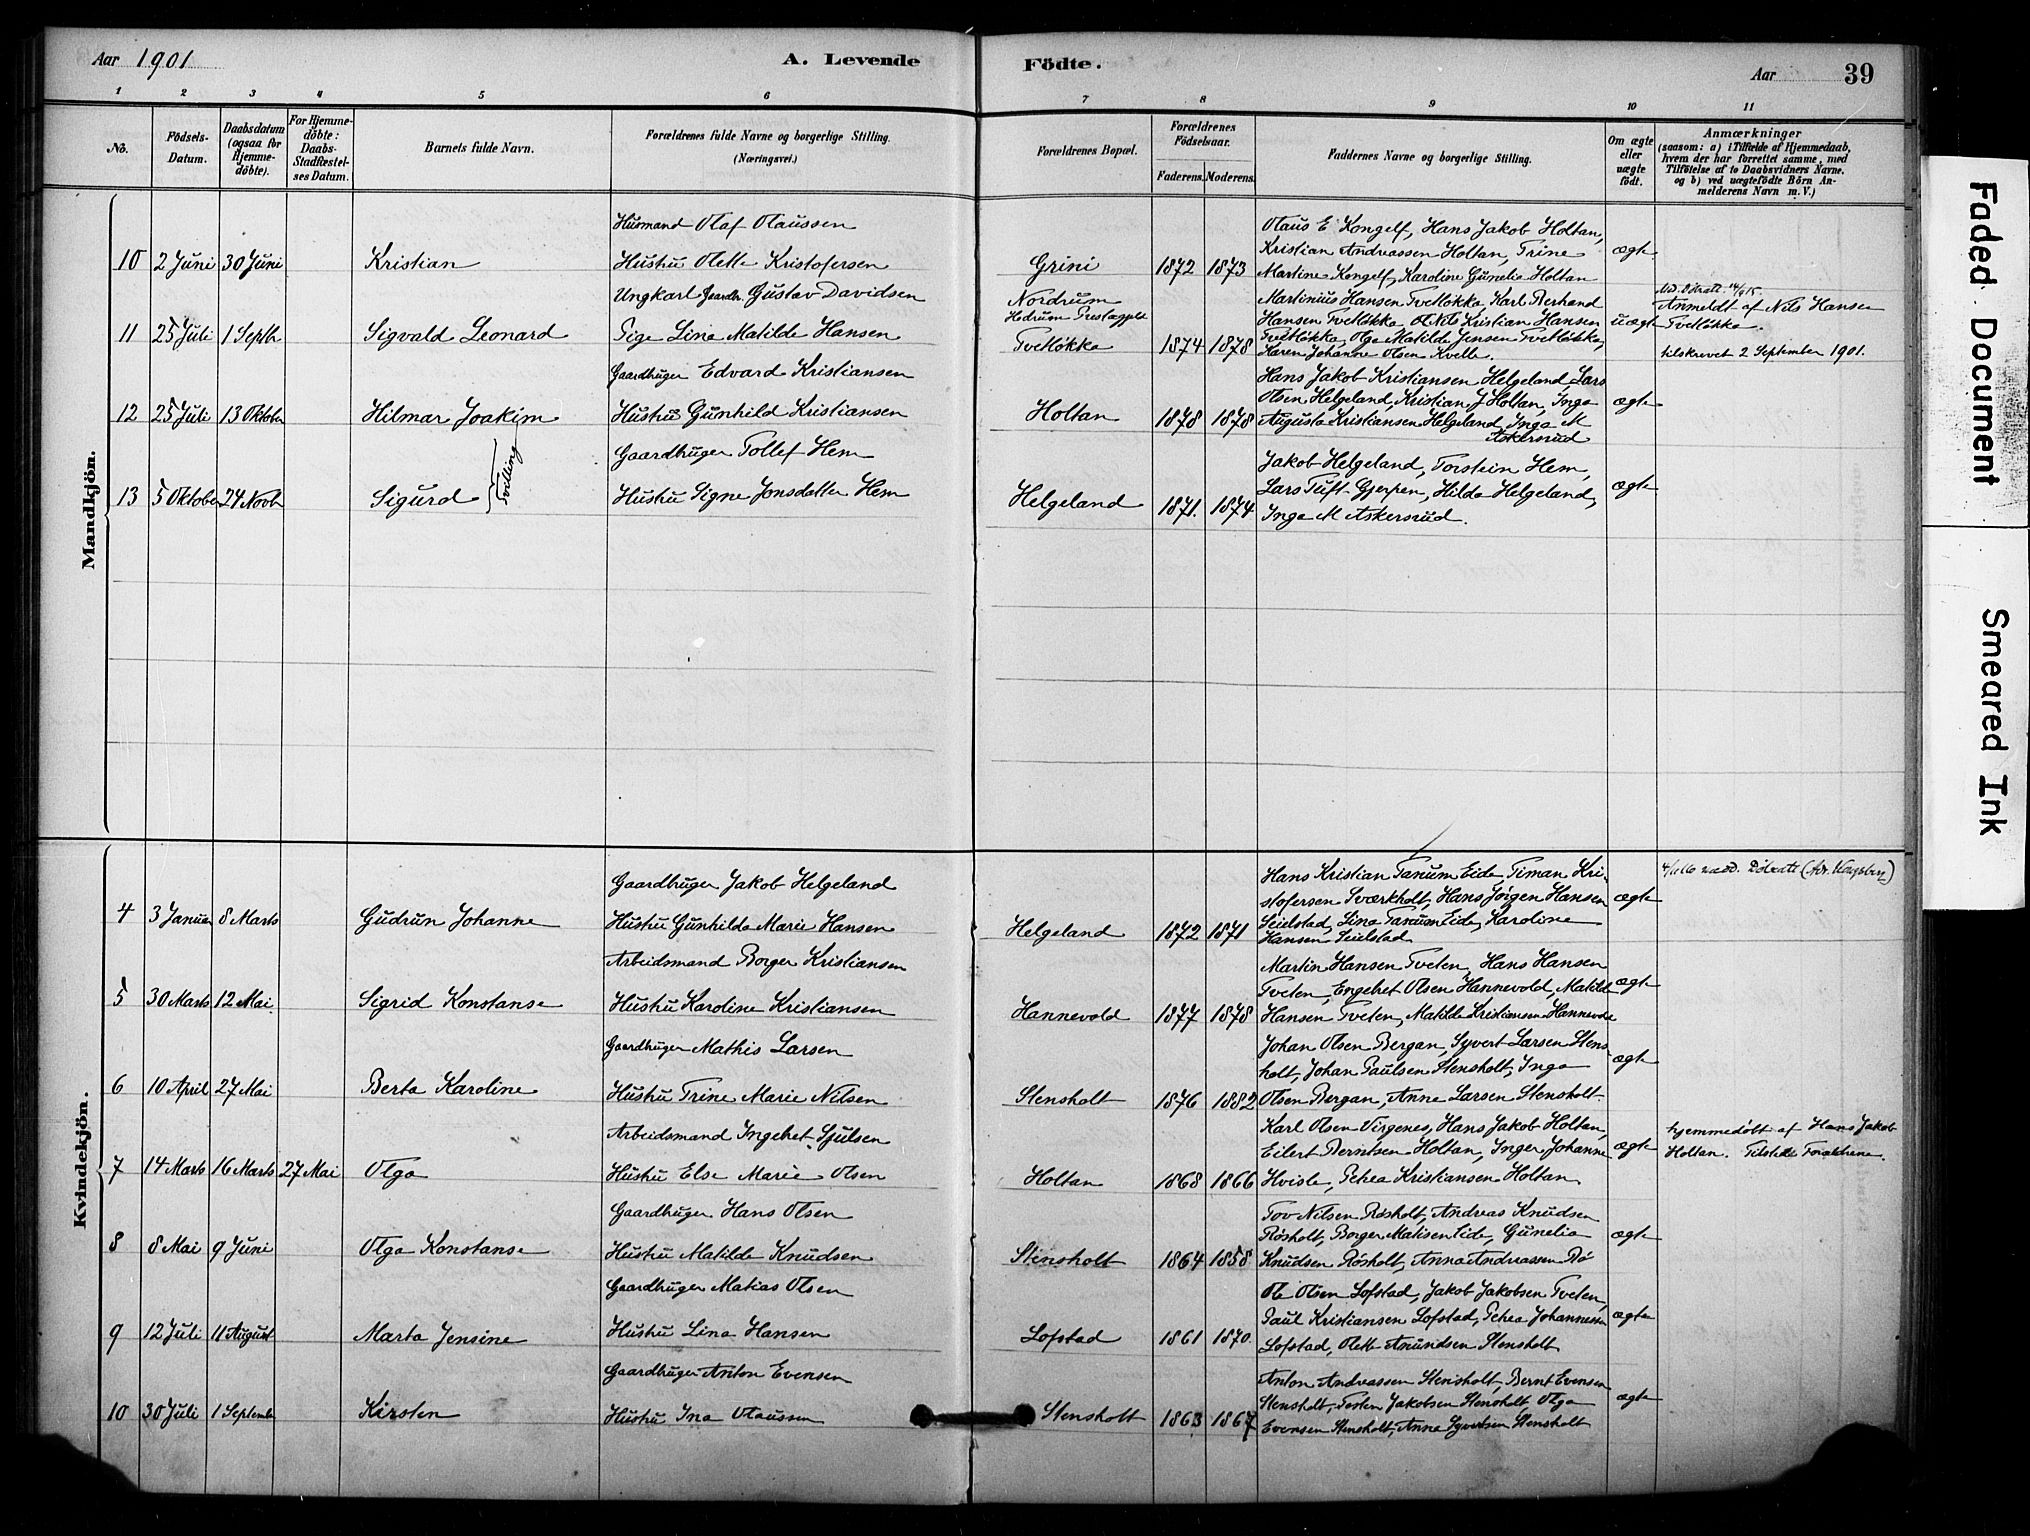 Aar 1901
A. Levende Födte.
Aar 39
1 2 3 4 5 6 7 8 9 10 11
No.
Födsels-Datum.
Daabsdatum (ogsaa for Hjemme-döbte).
For Hjemme-döbte: Daabs-Stadfæstel-ses Datum.
Barnets fulde Navn.
Forældrenes fulde Navne og borgerlige Stilling.
(Næringsvei.)
Forældrenes Bopæl.
Forældrenes Födselsaar.
Faderens. Moderens.
Faddernes Navne og borgerlige Stilling.
Om ægte eller uægte födt.
Anmærkninger
(saasom: a) i Tilfælde af Hjemmedaab,
hvem der har forrettet samme, med
Tilföielse af to Daabsvidners Navne.
og b) ved uægtefödte Börn An-
melderens Navn m. V.)
Mandkjön.
10 2 Juni 30 Juni Kristian
Husmand Olaf Olaussen
Hustru Olette Kristofersen
Grini 1872 1873
Olaus E Kongelf, Hans Jakob Holtan,
Kristian Andreassen Holtan, Trine
Martine Kongelf, Karoline Gunelia Holtan
ægte
11 25 Juli 1 Septbr Sigvald Leonard
Ungkarl Gaardbr. Gustav Davidsen
Pige Lina Matilde Hansen
Nordrum
Hedrum Prestegjeld
Tvetløkka 1874 1878
Martinius Hansen Tvetløkka Karl Berhand
Hansen Tvetløkka Nils Kristian Hansen
Tvetløkka, Olga Matilde Jensen Tvetløkka,
Karen Johanne Olsen Kvelle.
uægte
Anmeldt af Nils Hansen
Tvetløkka.
tilskrevet 2 September 1901.
12 25 Juli 13 Oktober Hilmar Joakim
Gaardbruger Edvard Kristiansen
Hustru Gunhild Kristiansen
Holtan 1878 1878
Hans Jakob Kristiansen Helgeland, Lars
Olsen Helgeland, Kristian J Holtan, Inga
Augusta Kristiansen Helgeland, Inga M
Askersrud
ægte
13 5 Oktober 24 Novbr Sigurd Tvilling
Gaardbruger Tollef Hem
Hustru Signe Jonsdatter Hem
Helgeland 1871. 1874
Jakob Helgeland, Torstein Hem,
Lars Tuft Gjerpen, Hilda Helgeland,
Inga M Askersrud.
ægte
Kvindekjön.
4 3 Januar 8 Marts Gudrun Johanne
Gaardbruger Jakob Helgeland
Hustru Gunhilda Marie Hansen
Helgeland 1872 1871
Hans Kristian Tanum Eide, Timan Kri-
stofersen Sværkholt, Hans Jörgen Hansen
Seielstad, Lina Tanum Eide, Karoline
Hansen Seielstad
ægte
5 30 Marts 12 Mai. Sigrid Konstanse
Arbeidsmand Borger Kristiansen
Hustru Karoline Kristiansen
Hannevold 1877 1878
Martin Hansen Tveten, Hans Hansen
Tveten, Engebret Olsen Hannevold, Matilde
Hansen Tveten, Matilde Kristiansen Hannevold
ægte
6 10 April 27 Mai Berta Karoline
Gaardbruger Mathis Larsen
Hustru Trine Marie Nilsen
Stensholt 1876 1882
Johan Olsen Bergan, Syvert Larsen Stens-
holt, Johan Paulsen Stensholt, Inga
Olsen Bergan, Anne Larsen Stensholt.
ægte
7 14 Marts 16 Marts 27 Mai Olga
Arbeidsmand Ingebret Sjulsen
Hustru Else Marie Olsen
Holtan 1868 1866
Karl Olsen Virgenes, Hans Jakob Holtan,
Eilert Berntsen Holtan, Inger Johanne
Hvisle, Petrea Kristiansen Holtan
ægte
hjemmedøbt af Hans Jakob
Holtan. Tilstede Forældrene.
8 8 Mai 9 Juni Olga Konstanse
Gaardbruger Hans Olsen
Hustru Matilde Knudsen
Stensholt 1864 1858
Tov Nilsen Røsholt, Andreas Knudsen
Røsholt, Borger Matisen Eide, Gunelia
Knudsen Røsholt, Anna Andreassen Rø
ægte
9 12 Juli 11 August Marta Jensine
Gaardbruger Matias Olsen
Hustru Lina Hansen
Lofstad 1861 1870
Ole Olsen Lofstad, Jakob Jakobsen Tveten,
Paul Kristiansen Lofstad, Petrea Johannessen
Lofstad, Olette Amundsen Stensholt
ægte
10 30 Juli 1 September Kirsten
Gaardbruger Anton Evensen
Hustru Ina Olaussen
Stensholt 1863 1867
Anton Andreassen Stensholt, Bernt Evensen
Stensholt, Torsten Jakobsen Stensholt, Olga
Evensen Stensholt, Anne Syvertsen Stensholt
ægte
Faded Document
Smeared Ink